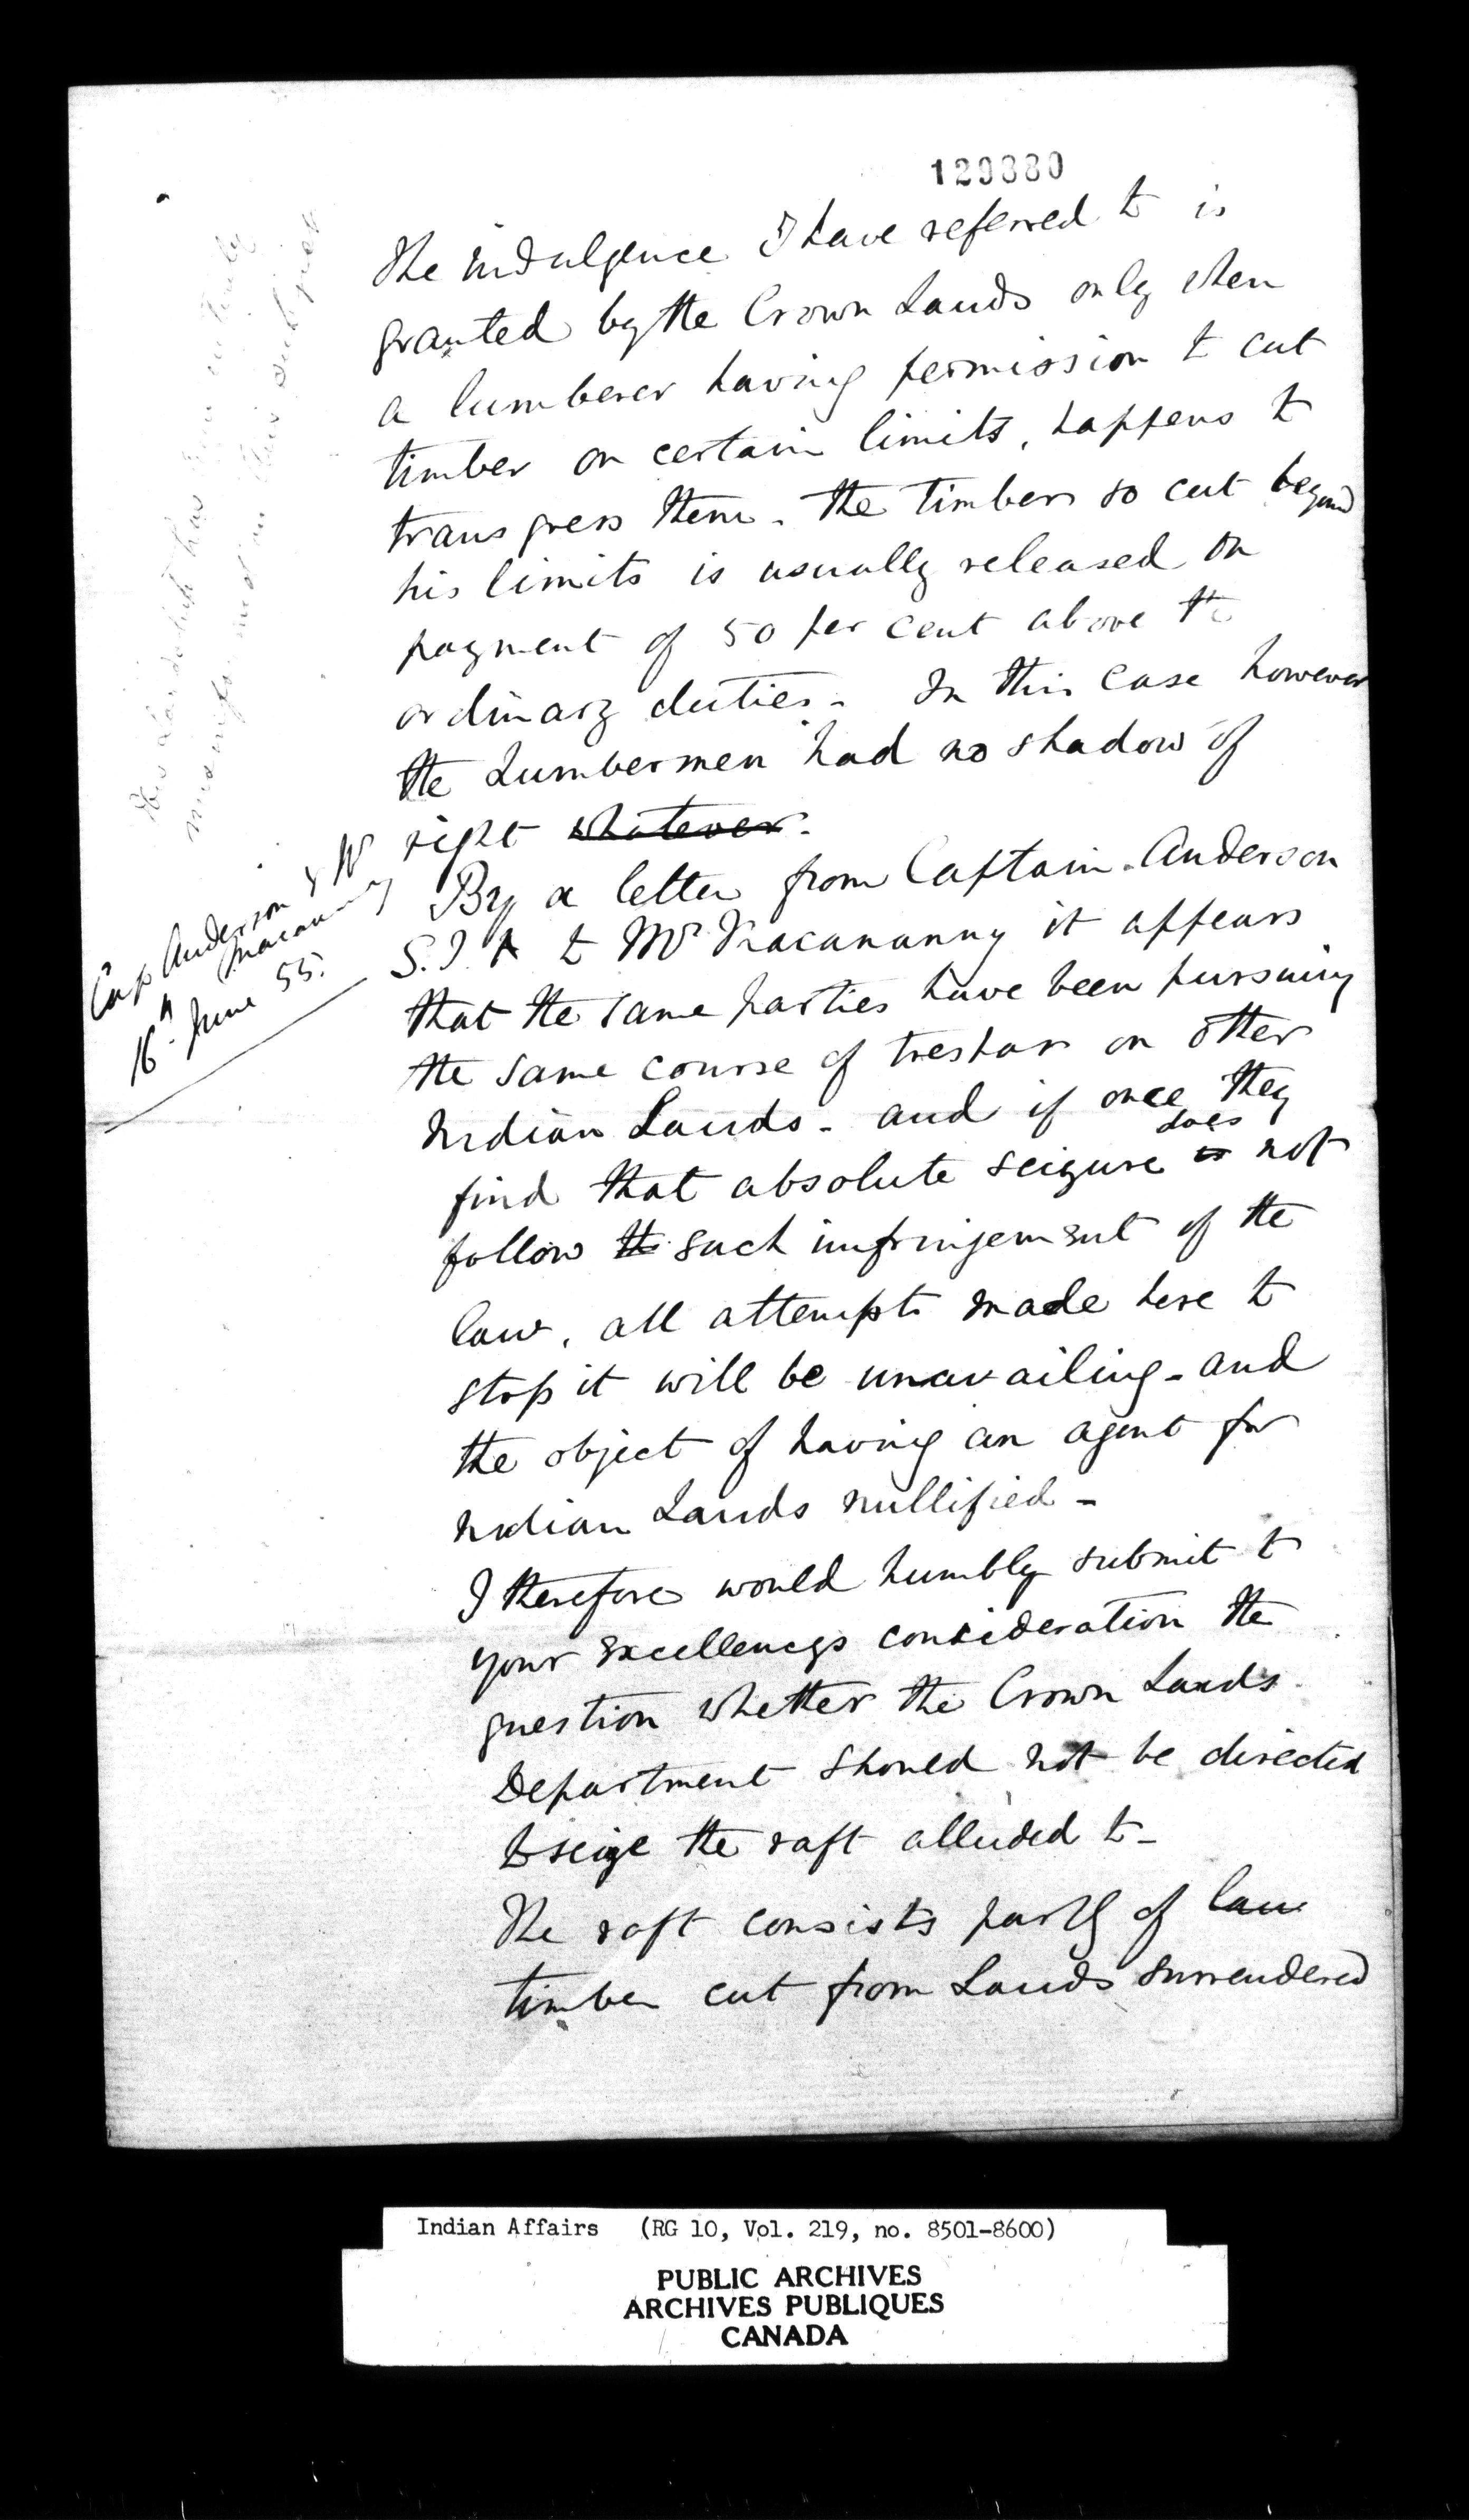 129880
The indulgence I have referred to is
granted by the Crown Lands only when
a lumberer having permission to cut
timber on certain limits, happens to
transgress them. The timber so cut beyond
his limits is usually released on
payment of 50 per cent above the
ordinary duties. In this case however
the Lumbermen had no shadow of
right whatever.
Cap Anderson & Mr
Macananny
16th June 55.
By a letter from Captain Anderson
S.I.A to Mr Macananny it appears
that the same parties have been pursuing
the same course of trespass on other
Indian Lands - and if once they
does
find that absolute seizure is not
follow the such infringement of the
law, all attempts made here to
stop it will be unavailing - and
the object of having an agent for
Indian Lands nullified -
I therefore would humbly submit to
your excellencys consideration the
question whether the Crown Lands
Department should not be directed
to seize the raft alluded to -
The raft consists partly of
timber cut from Lands surrendered
Indian Affairs (RG 10, Vol. 219, no. 8501-8600)
PUBLIC ARCHIVES
ARCHIVES PUBLIQUES
CANADA